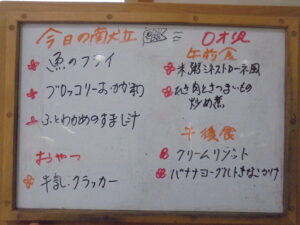 今日の献立
魚のフライ
ブロッコリーおかか和え
ふとわかめのすまし汁
おやつ
牛乳・クラッカー
0才児
午前食
米粥ミネストローネ風
ひき肉とさつまいもの
炒め煮
午後食
クリームリゾット
バナナヨーグルトきなこかけ